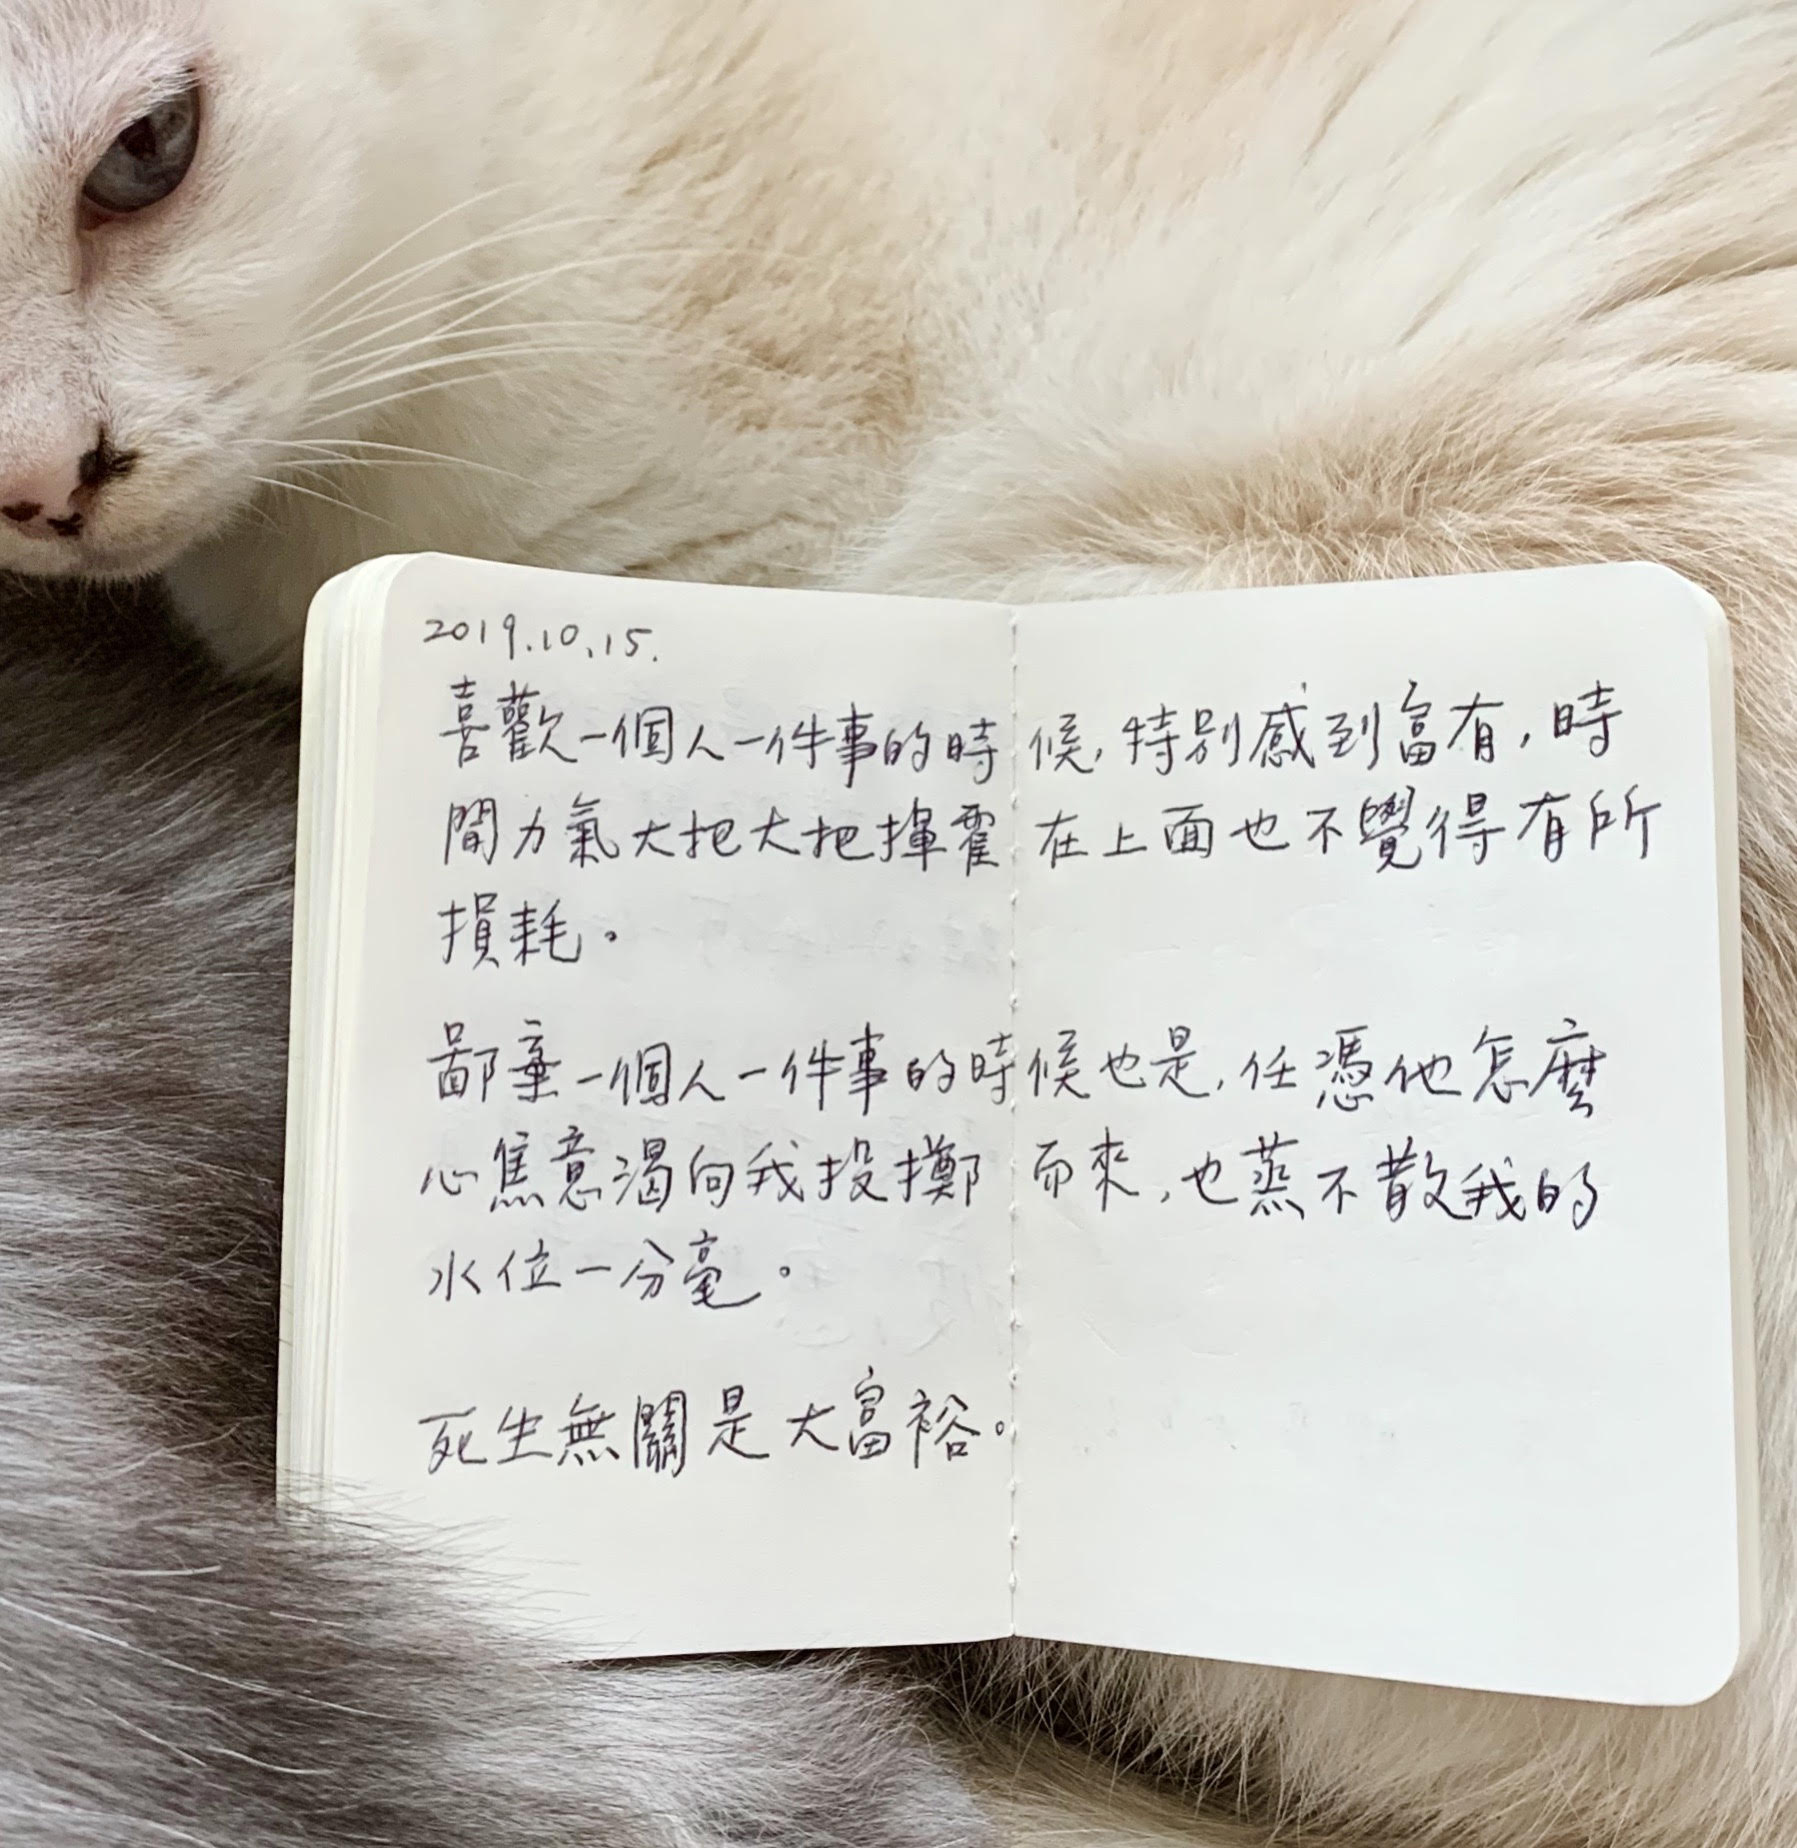 2019.10.15.
喜歡一個人一件事的時候,特別感到富有,時
間力氣大把大把揮霍在上面也不覺得有所
損耗。
鄙棄一個人一件事的時候也是,任憑他怎麼
心焦意渴向我投擲而來,也蒸不散我的
水位一分毫。
死生無關是大富裕。